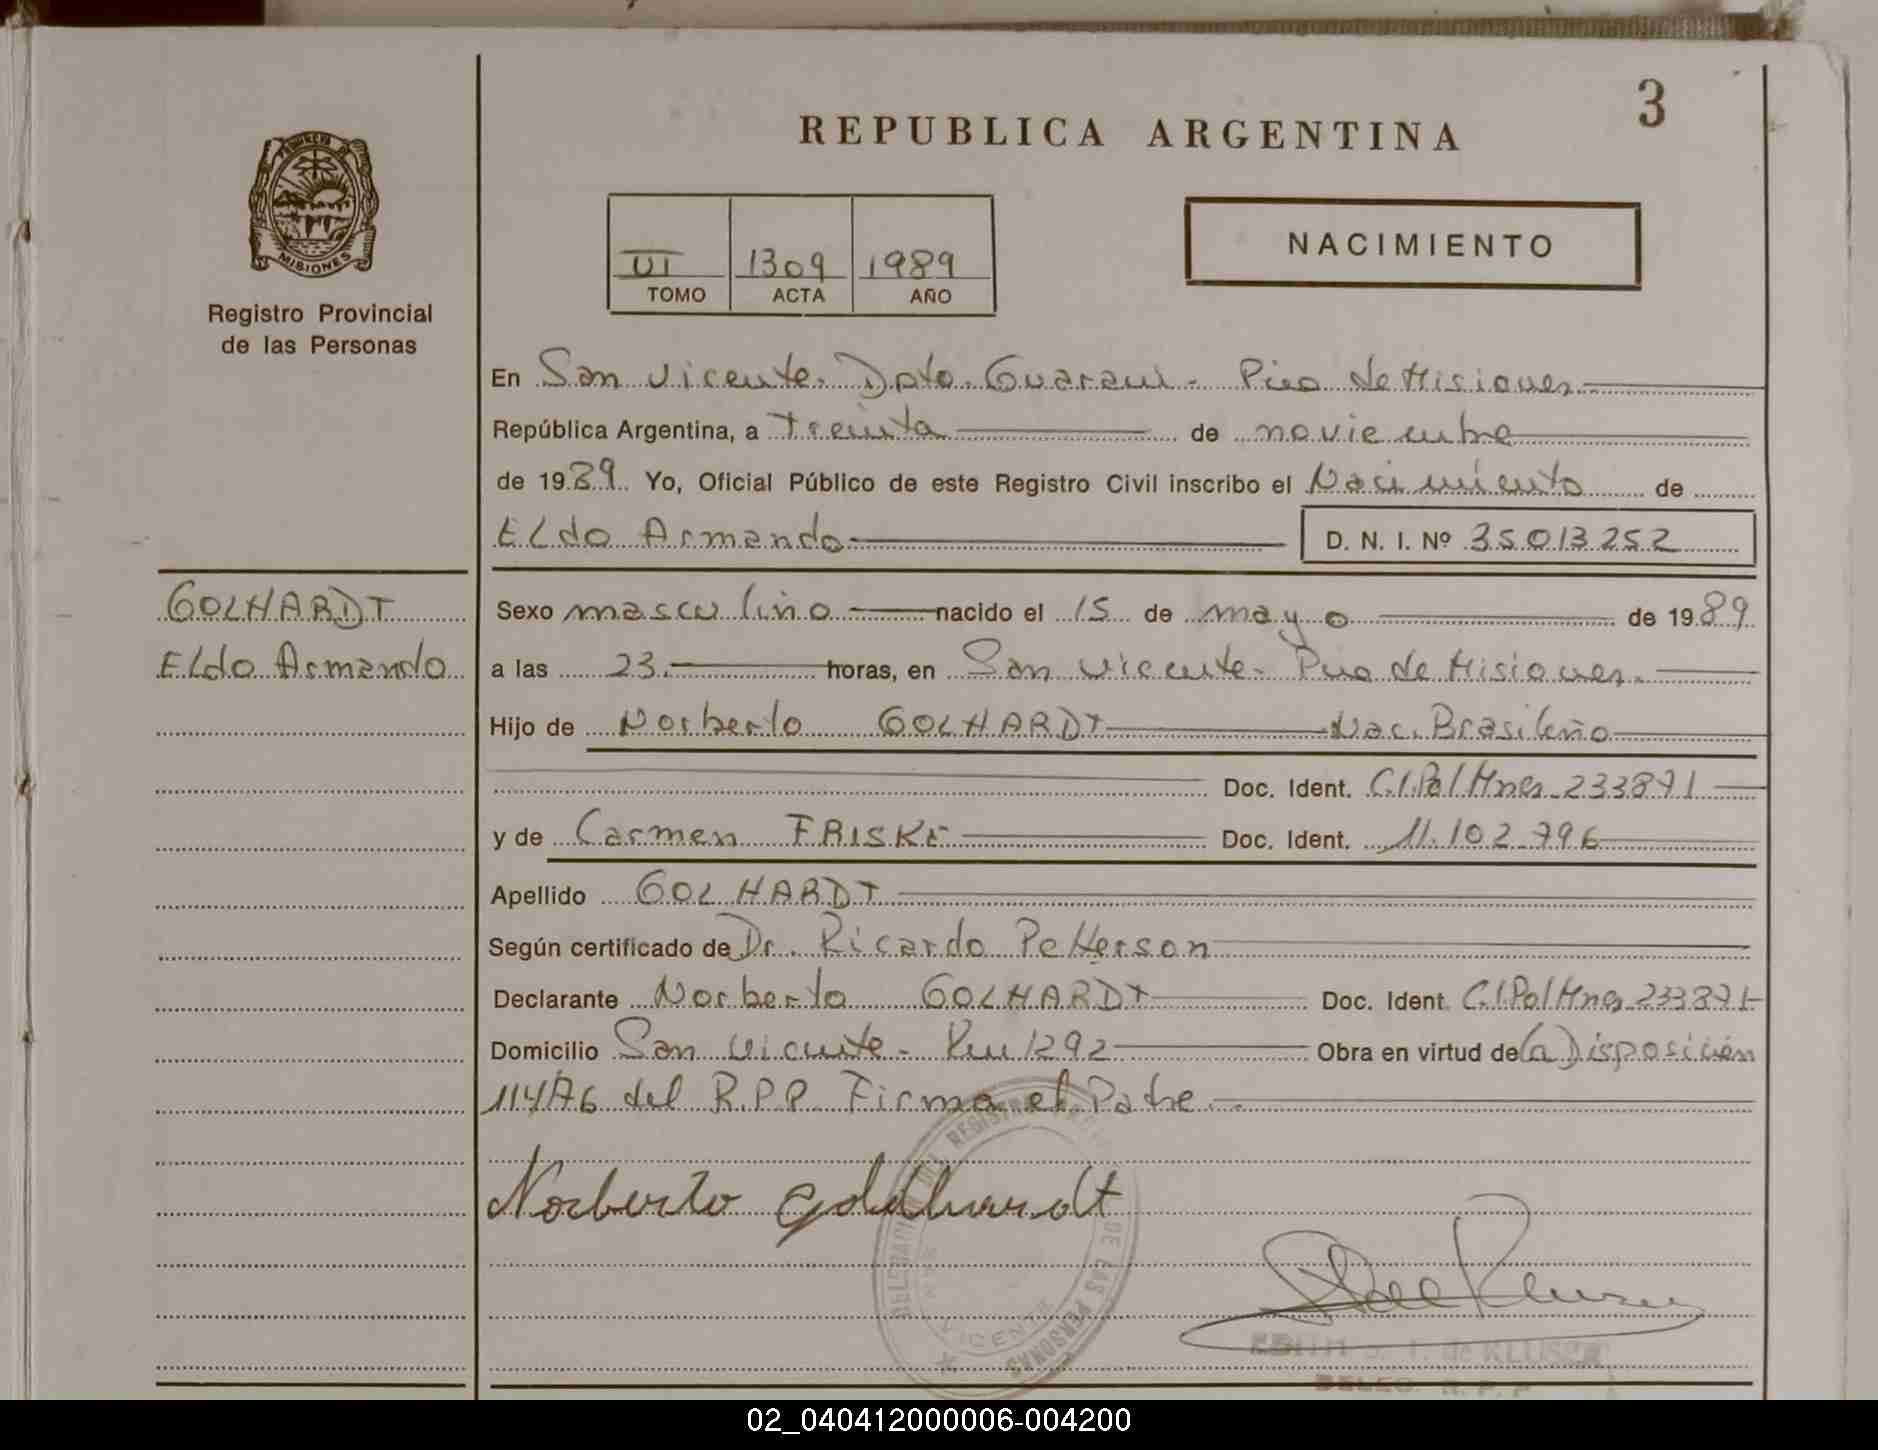 3
REPUBLICA ARGENTINA
PROVINCIA DE
MISIONES
Registro Provincial
de las Personas
VI 1309 1989
TOMO ACTA AÑO
NACIMIENTO
En San Vicente. Dpto. Guarani. Pcia de Misiones.
República Argentina, a treinta de noviembre
de 1989. Yo, Oficial Público de este Registro Civil inscribo el Nacimiento de
ELdo Armando D. N. I. Nº 35013252
GOLHARDT
ELdo Armando
Sexo masculino nacido el 15 de mayo de 1989
a las 23. horas, en San Vicente. Pcia de Misiones.
Hijo de Norberto GOLHARDT Nac. Brasileño
Doc. Ident. C.I.Pol Mnes 233871
y de Carmen FRISKE Doc. Ident. 11.102.796
Apellido GOLHARDT
Según certificado de Dr. Ricardo Petterson
Declarante Norberto GOLHARDT Doc. Ident. C.I.Pol Mnes 233871
Domicilio San Vicente. Km 1292 Obra en virtud de (a) Disposición
114/76 del R.P.P. Firma el Padre.
Norberto Goldhardt
DELEGACION DEL REGISTRO DE LAS PERSONAS
VICENTE
de KLUSKE
DELEG. R. P. P.
02_040412000006-004200